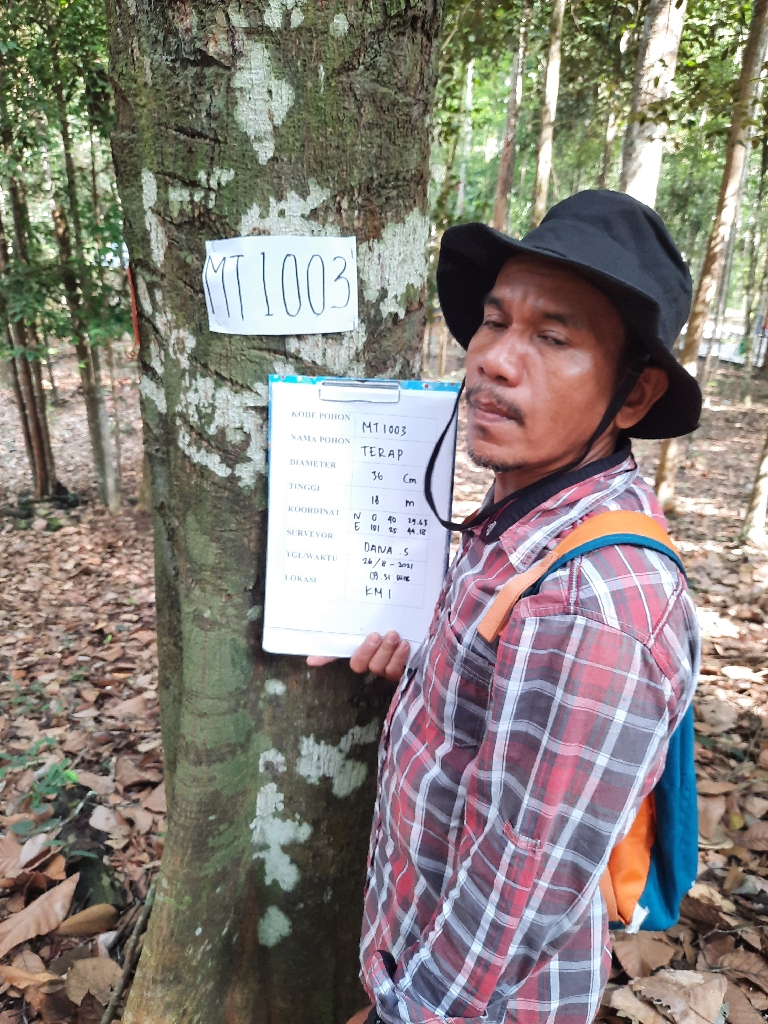 MT 1003
KODE POHON MT1003
NAMA POHON TERAP
DIAMETER 36 Cm
TINGGI 18 m
KOORDINAT N 0 40 29.63
E 101 25 44.18
SURVEYOR DANA . S
TGL/WAKTU 26/8 - 2021
09.31 WIB
LOKASI KM 1